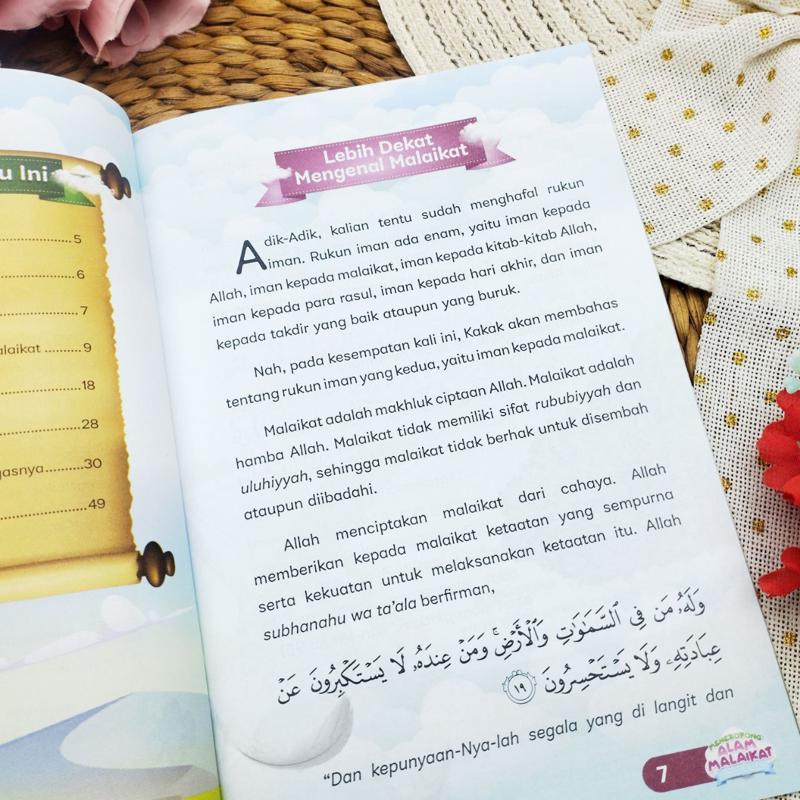 u Ini
5
6
7
alaikat 9
18
28
gasnya 30
49
Lebih Dekat
Mengenal Malaikat
Adik-Adik, kalian tentu sudah menghafal rukun
iman. Rukun iman ada enam, yaitu iman kepada
Allah, iman kepada malaikat, iman kepada kitab-kitab Allah,
iman kepada para rasul, iman kepada hari akhir, dan iman
kepada takdir yang baik ataupun yang buruk.
Nah, pada kesempatan kali ini, Kakak akan membahas
tentang rukun iman yang kedua, yaitu iman kepada malaikat.
Malaikat adalah makhluk ciptaan Allah. Malaikat adalah
hamba Allah. Malaikat tidak memiliki sifat rububiyyah dan
uluhiyyah, sehingga malaikat tidak berhak untuk disembah
ataupun diibadahi.
Allah menciptakan malaikat dari cahaya. Allah
memberikan kepada malaikat ketaatan yang sempurna
serta kekuatan untuk melaksanakan ketaatan itu. Allah
subhanahu wa ta'ala berfirman,
وَلَهُۥ مَن فِى ٱلسَّمَٰوَٰتِ وَٱلْأَرْضِ ۚ وَمَنْ عِندَهُۥ لَا يَسْتَكْبِرُونَ عَنْ
عِبَادَتِهِۦ وَلَا يَسْتَحْسِرُونَ ١٩
"Dan kepunyaan-Nya-lah segala yang di langit dan
7
MENEROPONG
ALAM
MALAIKAT